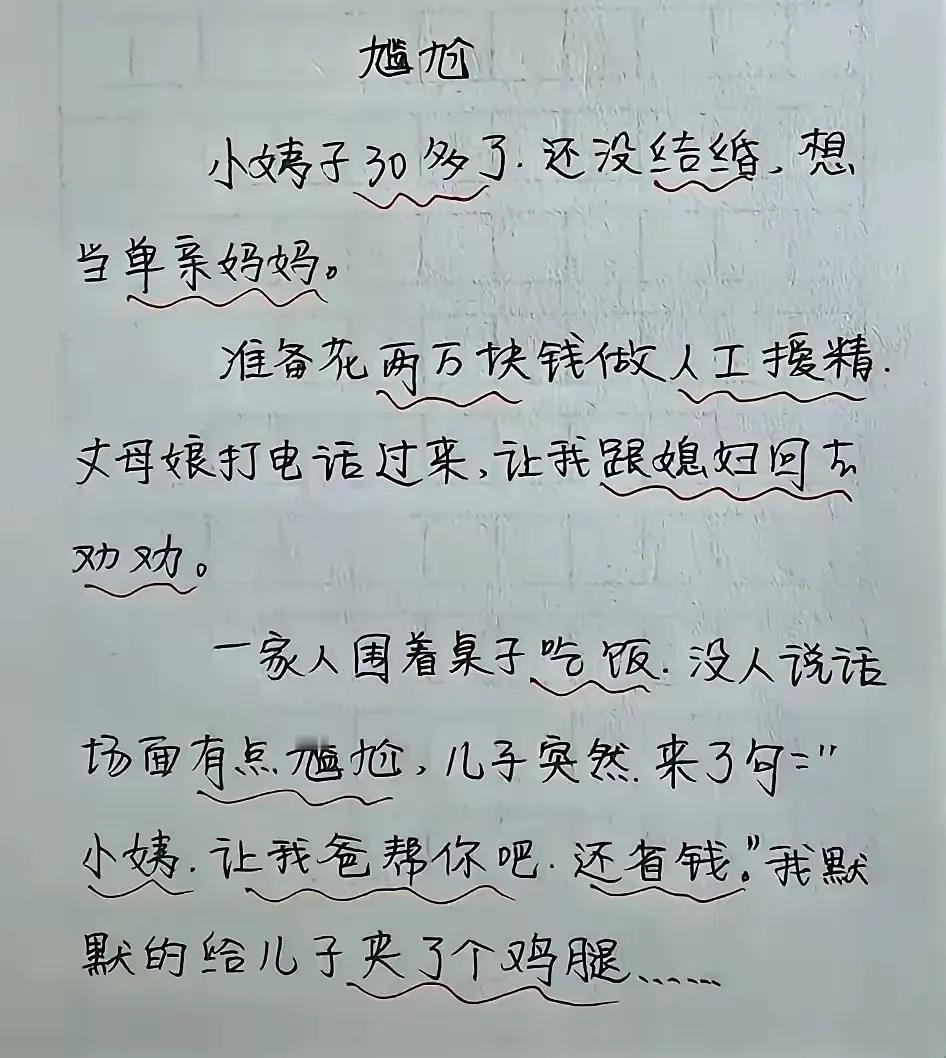 尴尬
小姨子30多了.还没结婚,想
当单亲妈妈。
准备花两万块钱做人工援精.
丈母娘打电话过来,让我跟媳妇回去
劝劝。
一家人围着桌子吃饭.没人说话
场面有点尴尬,儿子突然.来了句:"
小姨.让我爸帮你吧.还省钱。"我默
默的给儿子夹了个鸡腿......